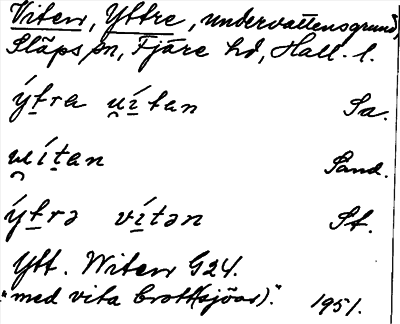 Viten, Yttre, undervattensgrund,
Släps sn, Fjäre hd, Hall. l.
ýt̲ra u̯í̲tan Sa.
u̯ít̲an Sand.
ýt̲rə ví̲tən St.
Ytt. Witen G24.
"med vita brott(sjöar)". 1951.